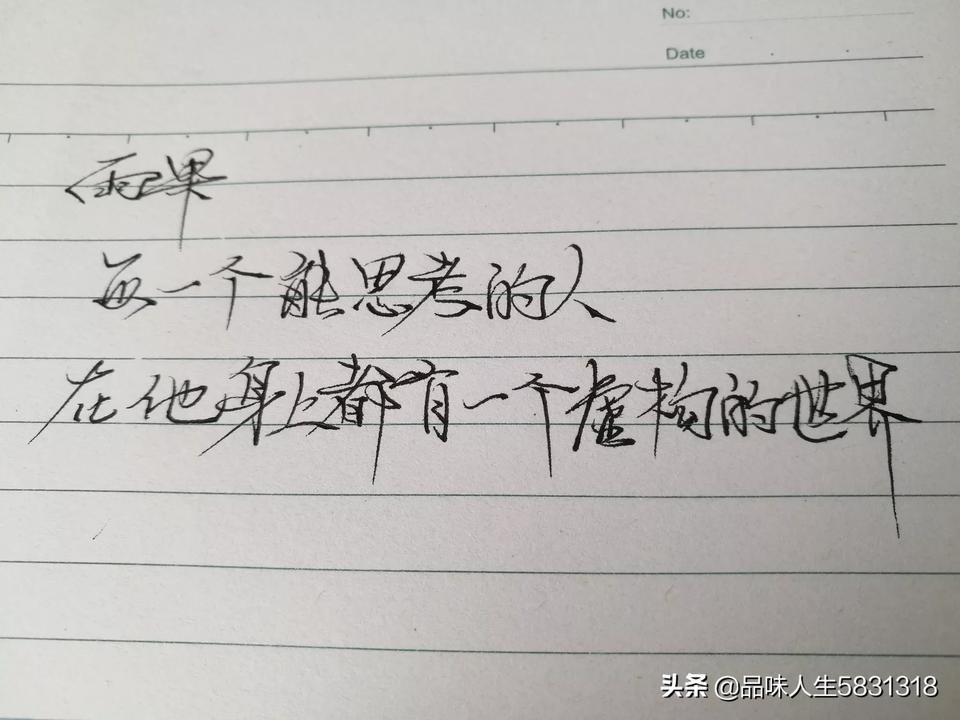 No:
Date
雨果
每一个能思考的人
在他身上都有一个虚构的世界
头条 @品味人生5831318